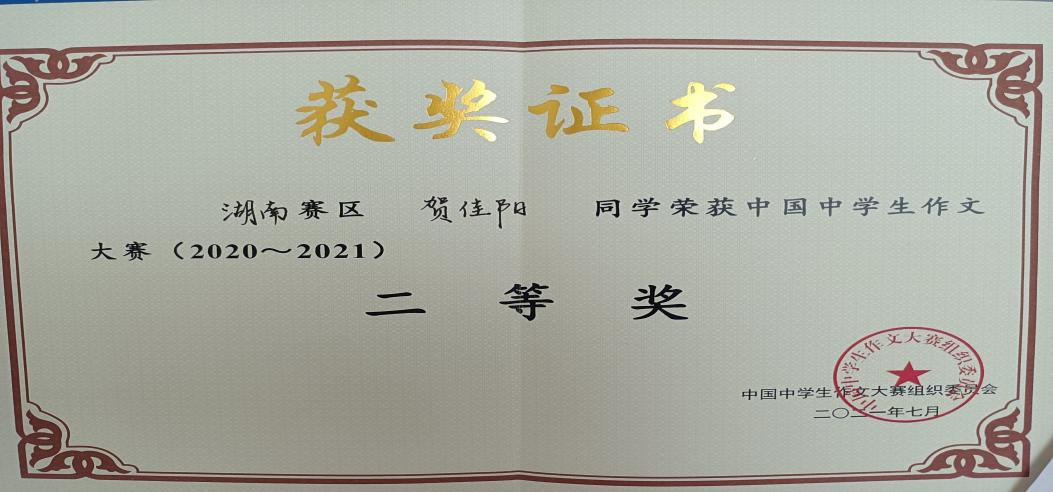 获奖证书
湖南赛区 贺佳阳 同学荣获中国中学生作文
大赛（2020～2021）
二等奖
中国中学生作文大赛组织委员会
二〇二一年七月
中国中学生作文大赛组织委员会